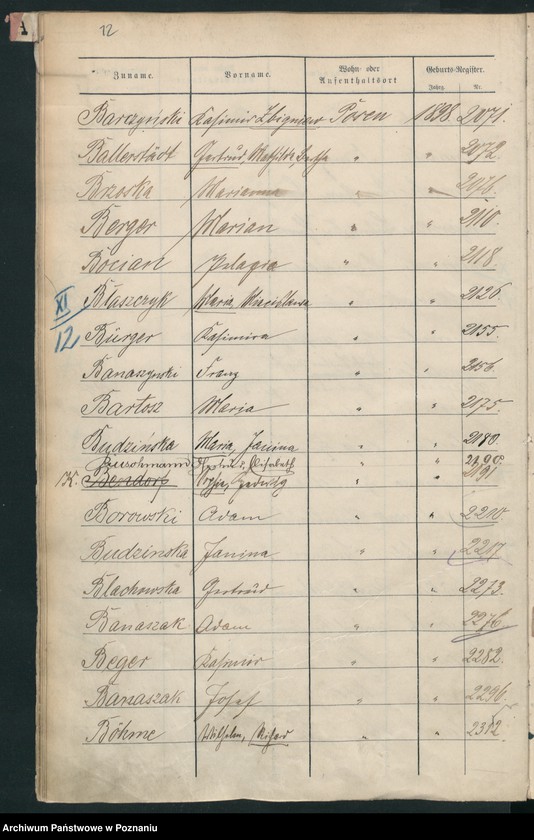 12
A
Zuname. Vorname. Wohn- oder Aufenthaltsort Geburts-Register.
Jahrg. Nr.
Barczyński Kasimir Zbigniew Posen 1898. 2071.
Ballerstädt Gertrud, Mathilde, Bertha " " 2072.
Brzeska Marianna " " 2076.
Berger Marian " " 2110.
Bocian Pelagia " " 2118
Błaszczyk Maria, " " 2126.
XI
12
Bürger Kasimira " " 2155.
Banaszynski Franz " " 2156.
Bartosz Maria " " 2175.
Budzińska Maria, Janina " " 2180.
Buschmann Gertrud, Elisabeth " " 2190.
K. Bendorf Hedwig " " 2191
Borowski Adam " " 2210
Budzinska Janina " " 2217
Blachowska Gertrud " " 2273.
Banaszak Adam " " 2276
Beger Kasimir " " 2282.
Banaszak Josef " " 2296.
Böhme Wilhelm, Richard " " 2312.
Archiwum Państwowe w Poznaniu